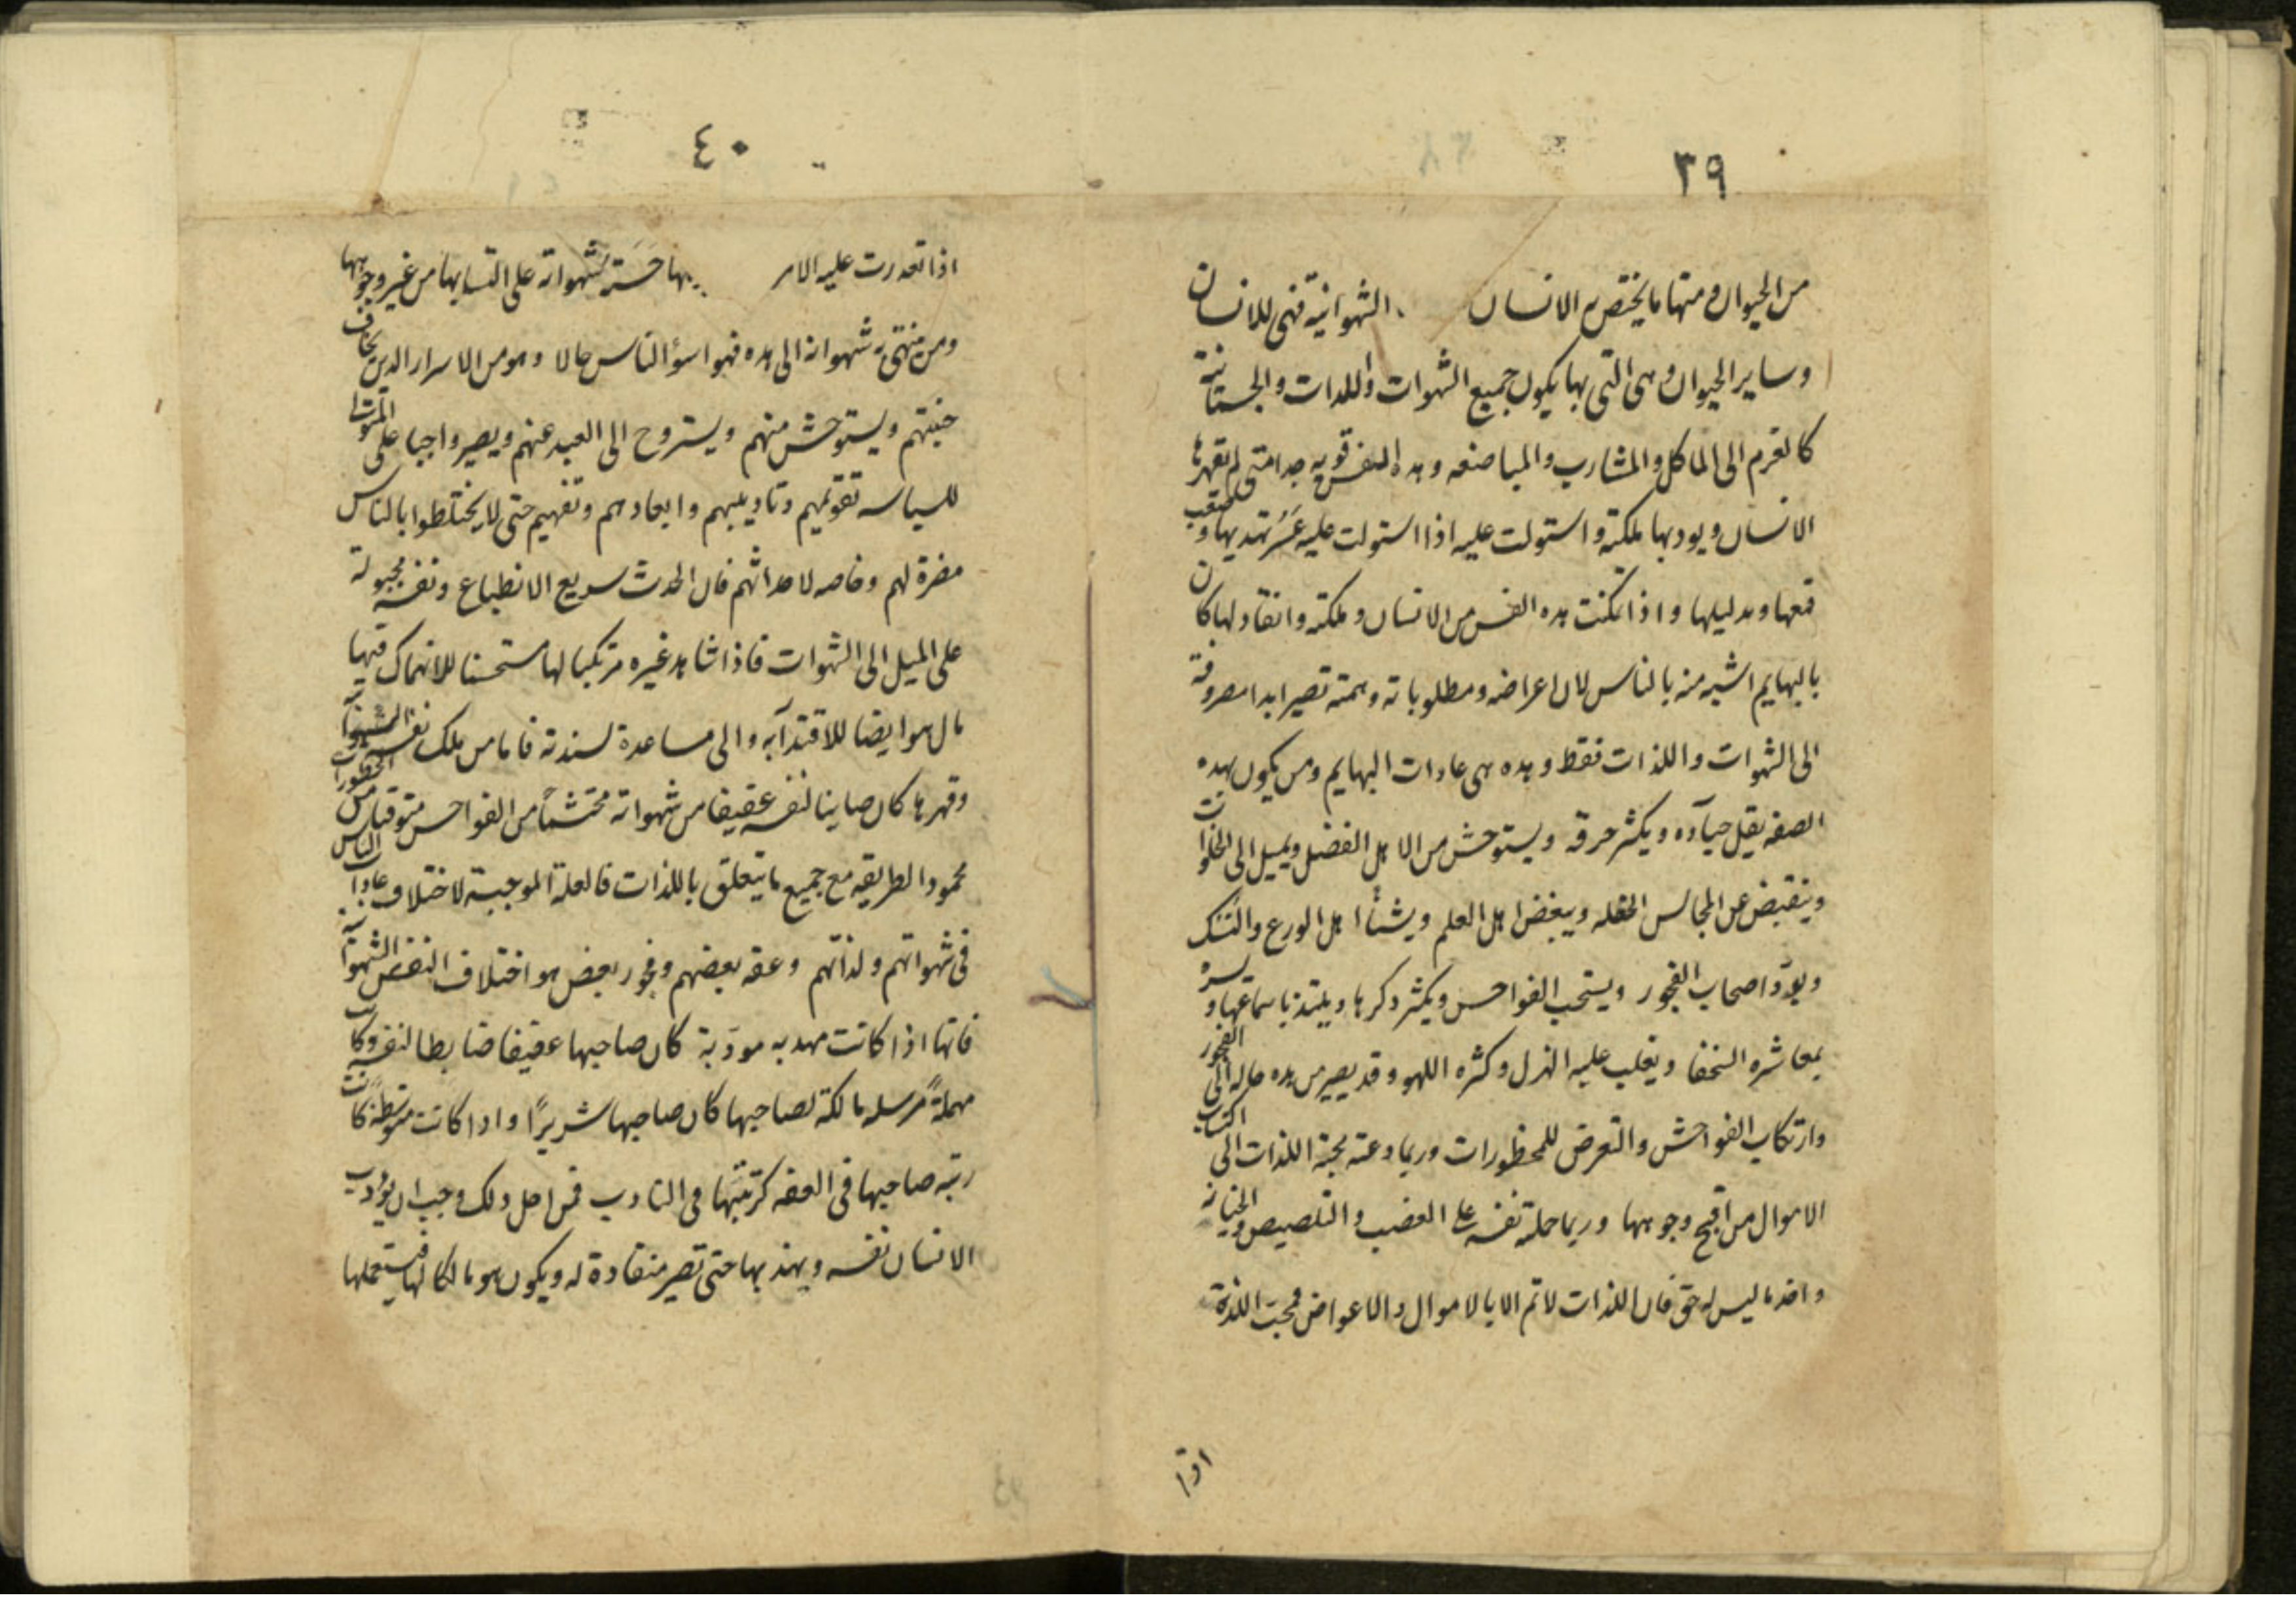 ٣٩
من الحيوان ومنها ما يختص به الانسان الشهوانية فهى للانسان
وساير الحيوان وهى التى بها يكون جميع الشهوات واللدات والجسمانية
كالقرم الى الماكل والمشارب والمباضعه وهده النفس قويه جدا متى لم تقهرها
الانسان ويودبها ملكته واستولت عليه اذا استولت عليه عَسُرَ تهديبها و صعب
قمعها وتدليلها واذا تمكنت هده النفس من الانسان وملكته وانقاد لها كان
بالبهايم اشبه منه بالناس لان اعراضه ومطلوباته وهمته تصير ابدا مصروفة
الى الشهوات واللذات فقط وهده هى عادات البهايم ومن يكون بهده
الصفه يقل حيآؤه ويكثر خرقه ويستوحش من الاهل الفضل ويميل الى الخلوات
وينقبض عن المجالس الحفله ويبغض اهل العلم ويشنأ اهل الورع والنسك
ويودّ اصحاب الفجور ويستحب الفواحس ويكثر دكرها ويلتذ باسماعتها و يسره
بمعاشره السخفا ويغلب عليه الهزل وكثره اللهو وقد يصير من هده حاله الى الفجور
وارتكاب الفواحش والتعرض للمحظورات وربما دعته محبة اللذات الى اكتساب
الاموال من اقبح وجوهها وربما حملته نفسه على الغضب والتلصيص والخيانه
واخد ما ليس له حق فان اللذات لا تتم الا بالاموال والاعواض فمحبت اللذة
اذا
٤٠
اذا تعدرت عليه الامر بها حسّرته شهواته على اكتسابها من غير وجوهها
ومن ينتهى به شهواته الى هده فهو اسؤ الناس حالا وهو من الاسرار الدين يخاف
خبثهم ويستوحش منهم ويستروح الى البعد عنهم ويصير واجبا على المتولى
للسياسه تقويمهم وتاديبهم وابعادهم ونفيهم حتى لا يختلطوا بالناس
مضرة لهم وخاصه لاحداثهم فان الحدث سريع الانطباع ونفسه مجبولة
على الميل الى الشهوات فاذا شاهد غيره مرتكبا لها مستحسنا للانهماك فيها
مال هو ايضا للاقتدآ به والى مساعدة لسدته فاما من ملك نفسه الشهوانية
وقهرها كان صاينا لنفسه عفيفا من شهواته محتشماً من الفواحس متوقيا من المحظورات
محمود الطريقه مع جميع ما يتعلق باللذات فالعلة الموجبة لاختلاف عادات الناس
فى شهواتهم ولذاتهم وعفه بعضهم وفجور بعض هو اختلاف النفس الشهوانية
فانها اذا كانت مهدبه مودّبة كان صاحبها عفيفا ضابطا لنفسه وكانت
مهملةً مرسله مالكة لصاحبها كان صاحبها شريرًا وادا كانت متوسّطة كانت
رتبه صاحبها فى العفه كرتبتها فى التادب فمن اجل دلك وجب ان يؤدب
الانسان نفسه ويهذبها حتى تصير منقادة له ويكون هو مالكا لها فيستعملها